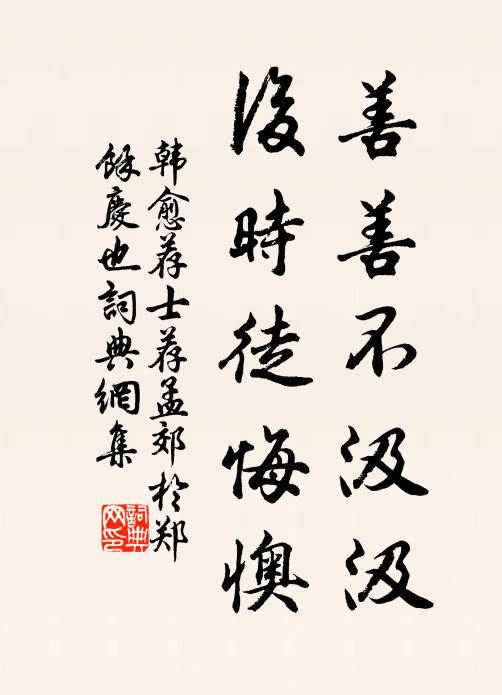 善善不汲汲
後時徒悔懊
韩愈荐士荐孟郊於郑
馀慶也詞典網集
詞典网印